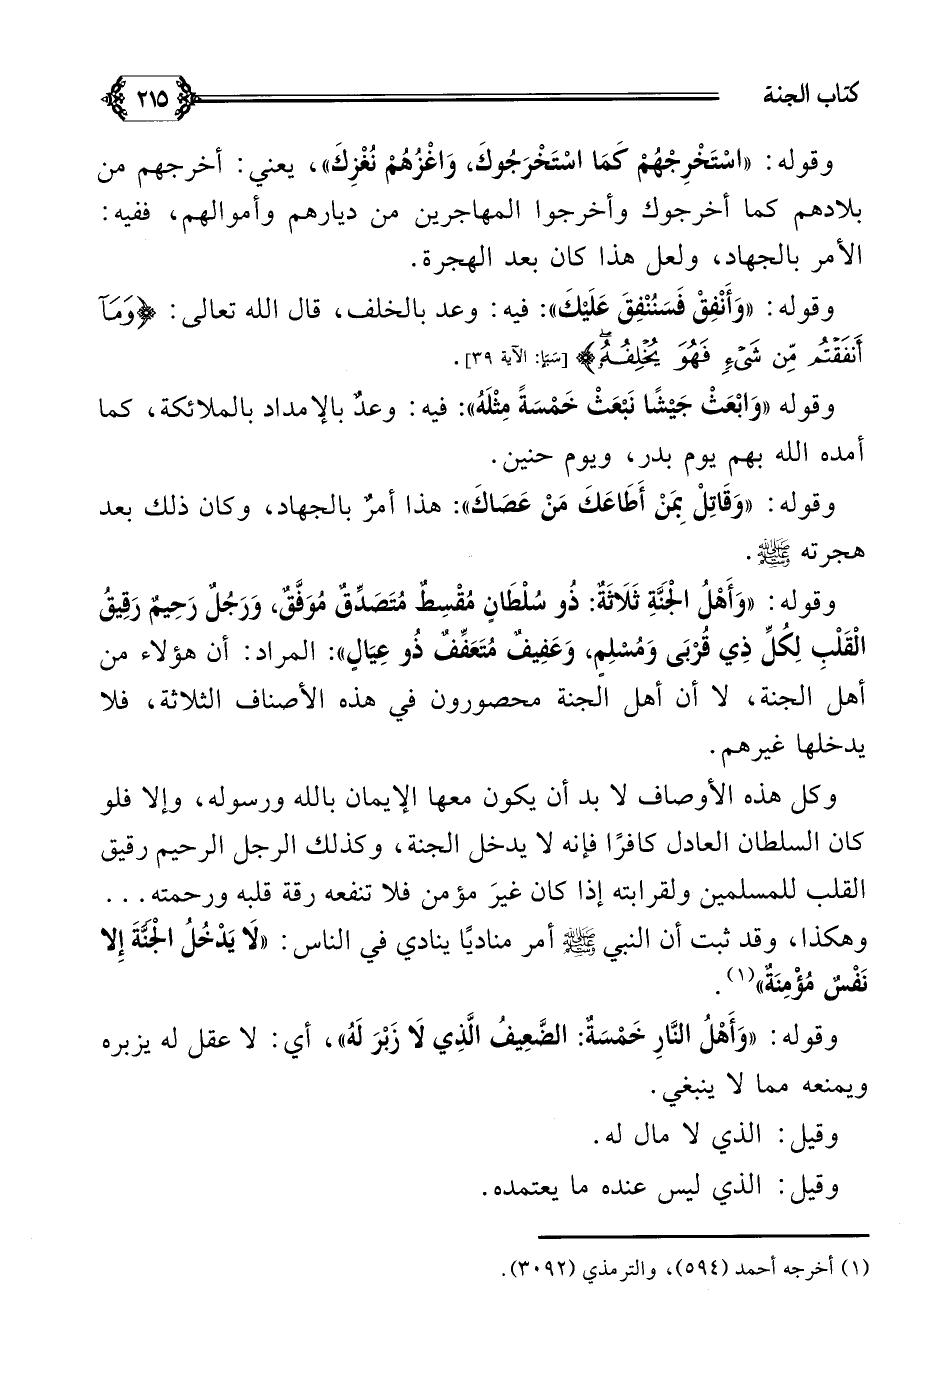 كتاب الجنة ٢١٥
وقوله: «اسْتَخْرِجْهُمْ كَمَا اسْتَخْرَجُوكَ، وَاغْزُهُمْ نُغْزِكَ»، يعني: أخرجهم من
بلادهم كما أخرجوك وأخرجوا المهاجرين من ديارهم وأموالهم، ففيه:
الأمر بالجهاد، ولعل هذا كان بعد الهجرة.
وقوله: «وَأَنْفِقْ فَسَنُنْفِقَ عَلَيْكَ»: فيه: وعد بالخلف، قال الله تعالى: ﴿وَمَآ
أَنفَقْتُم مِّن شَىْءٍ فَهُوَ يُخْلِفُهُۥۖ﴾ [سَبَإ: الآية ٣٩].
وقوله «وَابْعَثْ جَيْشًا نَبْعَثْ خَمْسَةً مِثْلَهُ»: فيه: وعدٌ بالإمداد بالملائكة، كما
أمده الله بهم يوم بدر، ويوم حنين.
وقوله: «وَقَاتِلْ بِمَنْ أَطَاعَكَ مَنْ عَصَاكَ»: هذا أمرٌ بالجهاد، وكان ذلك بعد
هجرته ﷺ.
وقوله: «وَأَهْلُ الْجَنَّةِ ثَلَاثَةٌ: ذُو سُلْطَانٍ مُقْسِطٌ مُتَصَدِّقٌ مُوَفَّقٌ، وَرَجُلٌ رَحِيمٌ رَقِيقُ
الْقَلْبِ لِكُلِّ ذِي قُرْبَى وَمُسْلِمٍ، وَعَفِيفٌ مُتَعَفِّفٌ ذُو عِيَالٍ»: المراد: أن هؤلاء من
أهل الجنة، لا أن أهل الجنة محصورون في هذه الأصناف الثلاثة، فلا
يدخلها غيرهم.
وكل هذه الأوصاف لا بد أن يكون معها الإيمان بالله ورسوله، وإلا فلو
كان السلطان العادل كافرًا فإنه لا يدخل الجنة، وكذلك الرجل الرحيم رقيق
القلب للمسلمين ولقرابته إذا كان غيرَ مؤمن فلا تنفعه رقة قلبه ورحمته...
وهكذا، وقد ثبت أن النبي ﷺ أمر مناديًا ينادي في الناس: «لَا يَدْخُلُ الْجَنَّةَ إِلا
نَفْسٌ مُؤْمِنَةٌ»(١).
وقوله: «وَأَهْلُ النَّارِ خَمْسَةٌ: الضَّعِيفُ الَّذِي لَا زَبْرَ لَهُ»، أي: لا عقل له يزبره
ويمنعه مما لا ينبغي.
وقيل: الذي لا مال له.
وقيل: الذي ليس عنده ما يعتمده.
(١) أخرجه أحمد (٥٩٤)، والترمذي (٣٠٩٢).